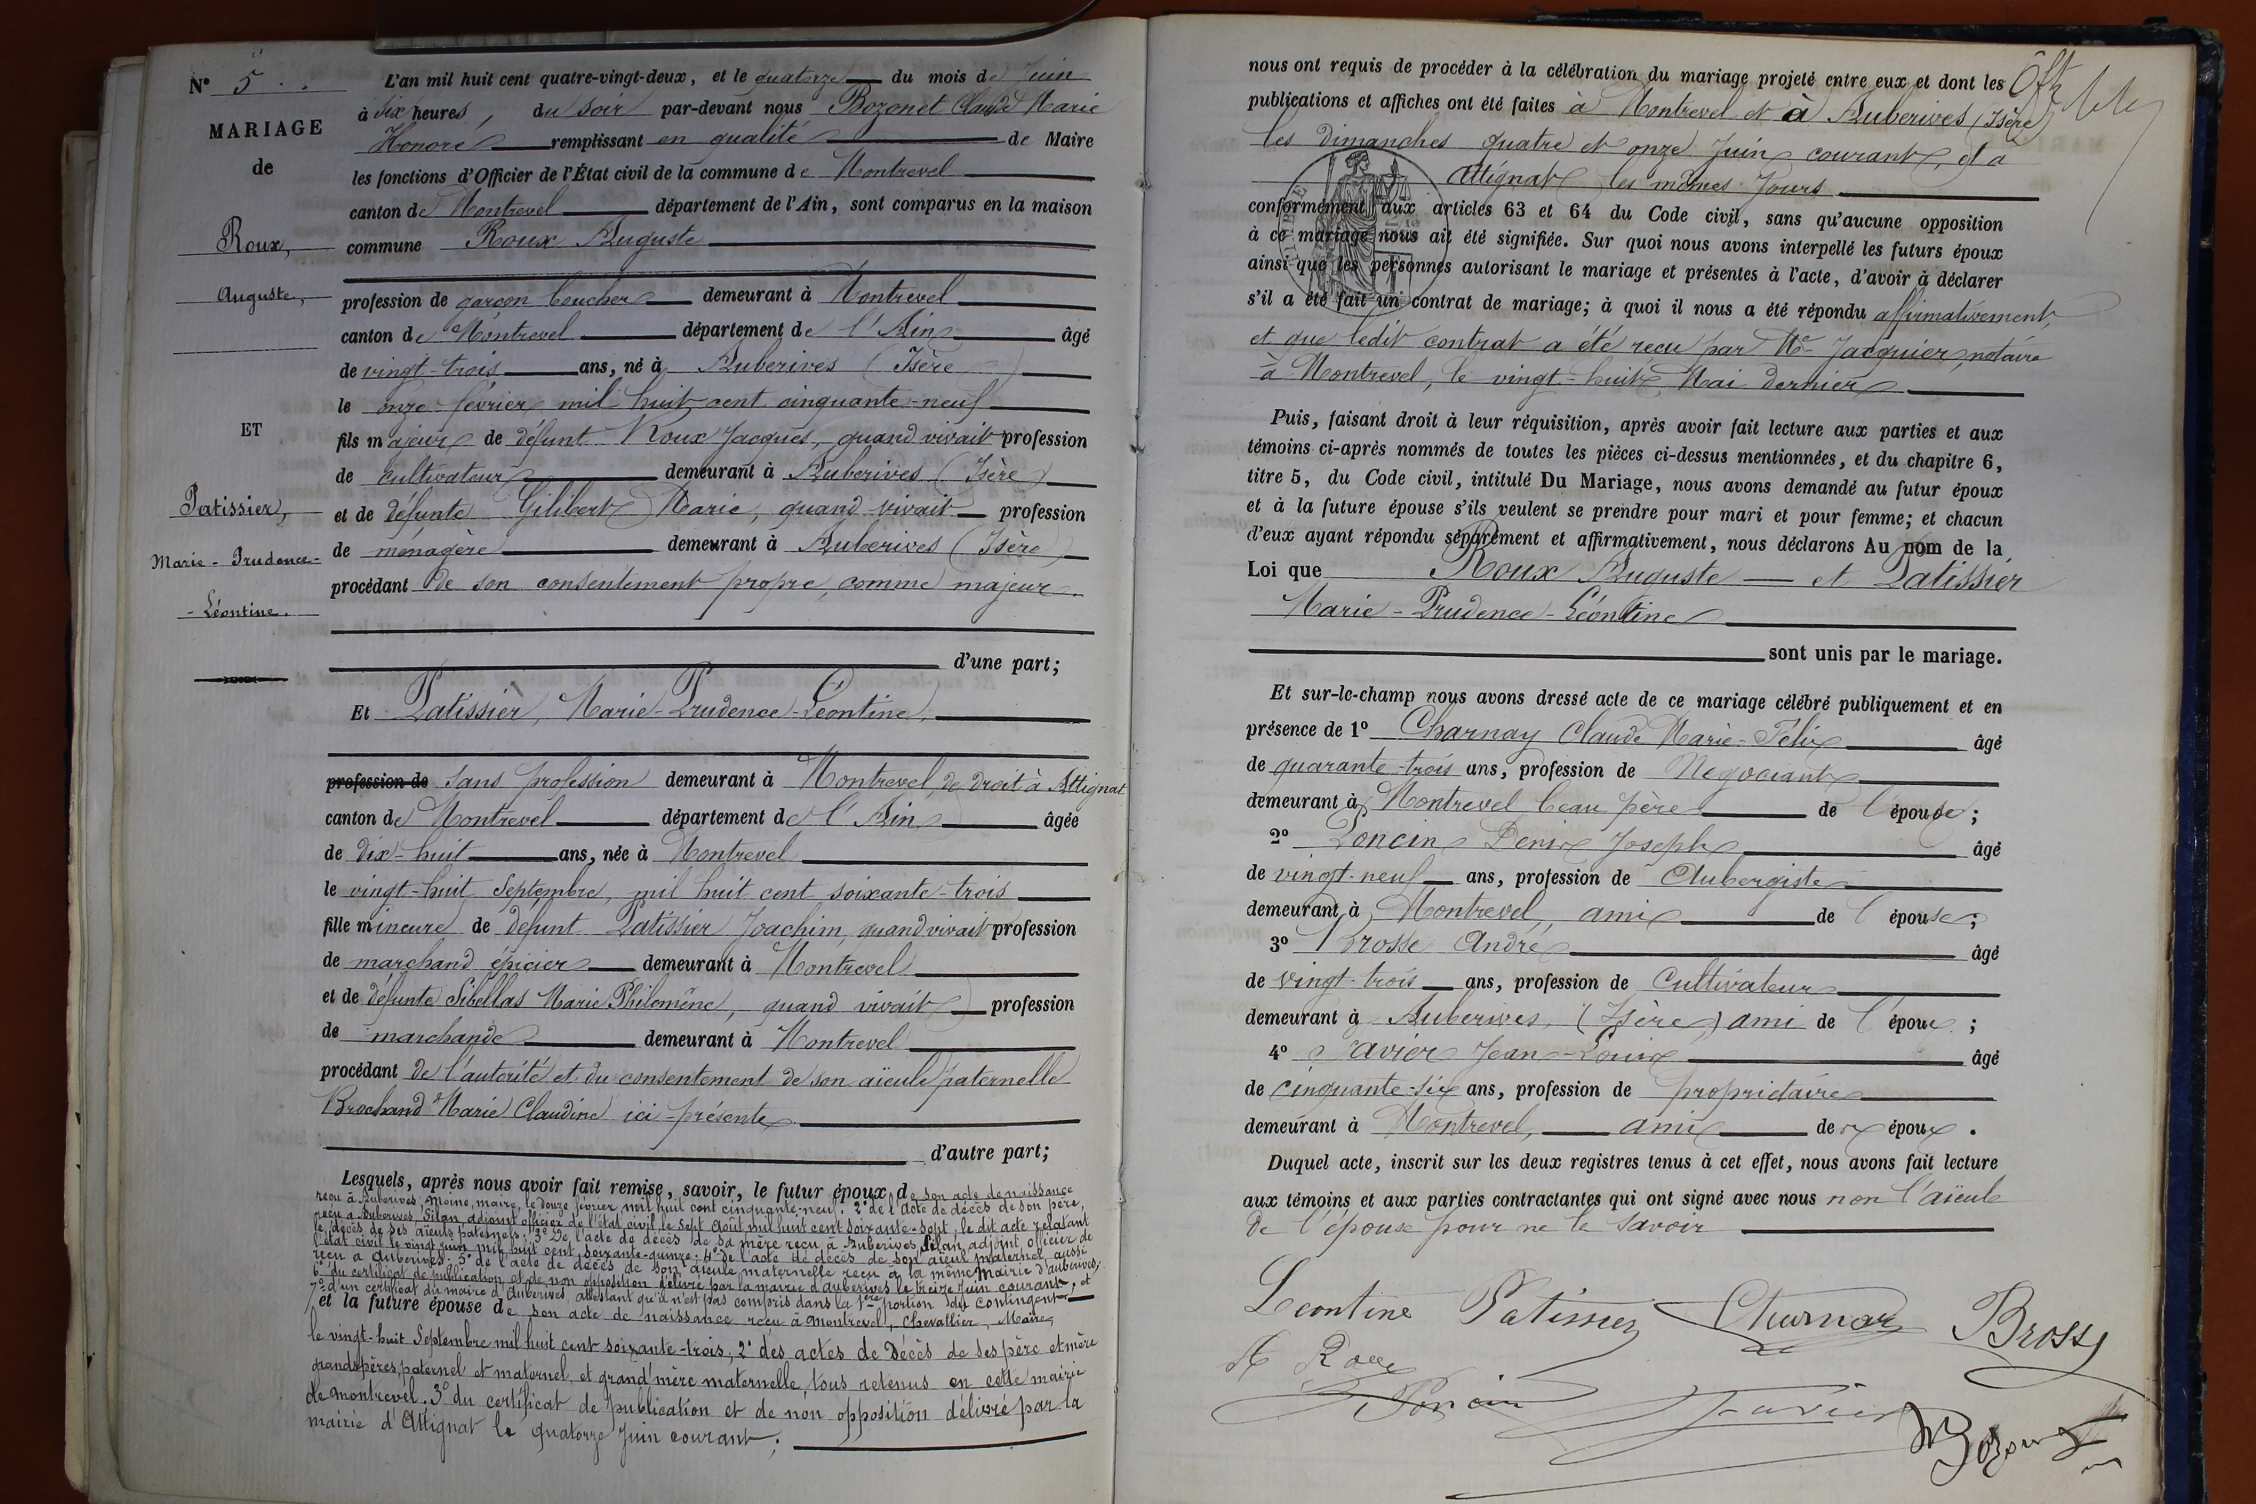 N° 5
MARIAGE
de
Roux,
Auguste,
ET
Patissier,
Marie-Prudence-
-Léontine.
L'an mil huit cent quatre-vingt-deux, et le quatorze du mois de Juin
à six heures, du soir par-devant nous Bozonet Claude Marie
Honoré remplissant en qualité de Maire
les fonctions d'Officier de l'État civil de la commune de Montrevel
canton de Montrevel département de l'Ain, sont comparus en la maison
commune Roux Auguste
profession de garçon boucher demeurant à Montrevel
canton de Montrevel département de l'Ain âgé
de vingt-trois ans, né à Auberives (Isère)
le onze février mil huit cent cinquante-neuf
fils majeur de défunt Roux Jacques, quand vivait profession
de cultivateur demeurant à Auberives (Isère)
et de défunte Gilibert Marie, quand vivait profession
de ménagère demeurant à Auberives (Isère)
procédant de son consentement propre, comme majeur.
d'une part;
Et Patissier, Marie-Prudence-Léontine,
profession de sans profession demeurant à Montrevel, de droit à Attignat
canton de Montrevel département de l'Ain âgée
de dix-huit ans, née à Montrevel
le vingt-huit Septembre, mil huit cent soixante-trois
fille mineure de défunt Patissier Joachim, quand vivait profession
de marchand épicier demeurant à Montrevel
et de défunte Sibellas Marie Philomène, quand vivait profession
de marchande demeurant à Montrevel
procédant de l'autorité et du consentement de son aïeule paternelle
Brochand Marie Claudine ici présente
d'autre part;
Lesquels, après nous avoir fait remise, savoir, le futur époux de son acte de naissance
reçu à Auberives, Moine, maire, le douze février mil huit cent cinquante-neuf. 2° de l'acte de décès de son père,
reçu à Auberives, Silan, adjoint officier de l'état civil, le sept Août mil huit cent soixante-sept, le dit acte relatant
le décès de ses aïeuls paternels. 3° De l'acte de décès de sa mère reçu à Auberives, Silan, adjoint, officier de
l'état civil le vingt juin mil huit cent soixante-quinze. 4° de l'acte de décès de son aïeul maternel, aussi
reçu à Auberives. 5° de l'acte de décès de son aïeule maternelle reçu à la même Mairie d'Auberives,
6° du certificat de publication et de non opposition délivré par la mairie d'Auberives le treize Juin courant, et
7° d'un certificat du maire d'Auberives, attestant qu'il n'est pas compris dans la 1ère portion du contingent,
et la future épouse de son acte de naissance reçu à Montrevel, Chevallier, Maire,
le vingt-huit Septembre mil huit cent soixante-trois, 2° des actes de Décès de ses père et mère
grands-pères, paternel et maternel, et grand'mère maternelle, tous retenus en cette mairie
de Montrevel. 3° du certificat de publication et de non opposition délivré par la
mairie d'Attignat le quatorze Juin courant;
nous ont requis de procéder à la célébration du mariage projeté entre eux et dont les
publications et affiches ont été faites à Montrevel et à Auberives (Isère)
les dimanches quatre et onze Juin courant, et à
Attignat les mêmes Jours
conformément aux articles 63 et 64 du Code civil, sans qu'aucune opposition
à ce mariage nous ait été signifiée. Sur quoi nous avons interpellé les futurs époux
ainsi que les personnes autorisant le mariage et présentes à l'acte, d'avoir à déclarer
s'il a été fait un contrat de mariage; à quoi il nous a été répondu affirmativement,
et que ledit contrat a été reçu par Me Jacquier, notaire
à Montrevel, le vingt-huit Mai dernier
Puis, faisant droit à leur réquisition, après avoir fait lecture aux parties et aux
témoins ci-après nommés de toutes les pièces ci-dessus mentionnées, et du chapitre 6,
titre 5, du Code civil, intitulé Du Mariage, nous avons demandé au futur époux
et à la future épouse s'ils veulent se prendre pour mari et pour femme; et chacun
d'eux ayant répondu séparément et affirmativement, nous déclarons Au nom de la
Loi que Roux Auguste et Patissier
Marie-Prudence-Léontine
sont unis par le mariage.
Et sur-le-champ nous avons dressé acte de ce mariage célébré publiquement et en
présence de 1° Charnay Claude Marie-Félix âgé
de quarante-trois ans, profession de Négociant
demeurant à Montrevel beau père de l'épouse;
2° Poncin Denis Joseph âgé
de vingt-neuf ans, profession de Aubergiste
demeurant à Montrevel, ami de l'épouse;
3° Brosse André âgé
de vingt-trois ans, profession de Cultivateur
demeurant à Auberives, (Isère) ami de l'époux;
4° Favier Jean-Louis âgé
de cinquante-six ans, profession de propriétaire
demeurant à Montrevel, ami des époux.
Duquel acte, inscrit sur les deux registres tenus à cet effet, nous avons fait lecture
aux témoins et aux parties contractantes qui ont signé avec nous non l'aïeule
de l'épouse pour ne le savoir
Léontine Patissier Charnay Brosse
A Roux
Poncin Favier
Bozonet